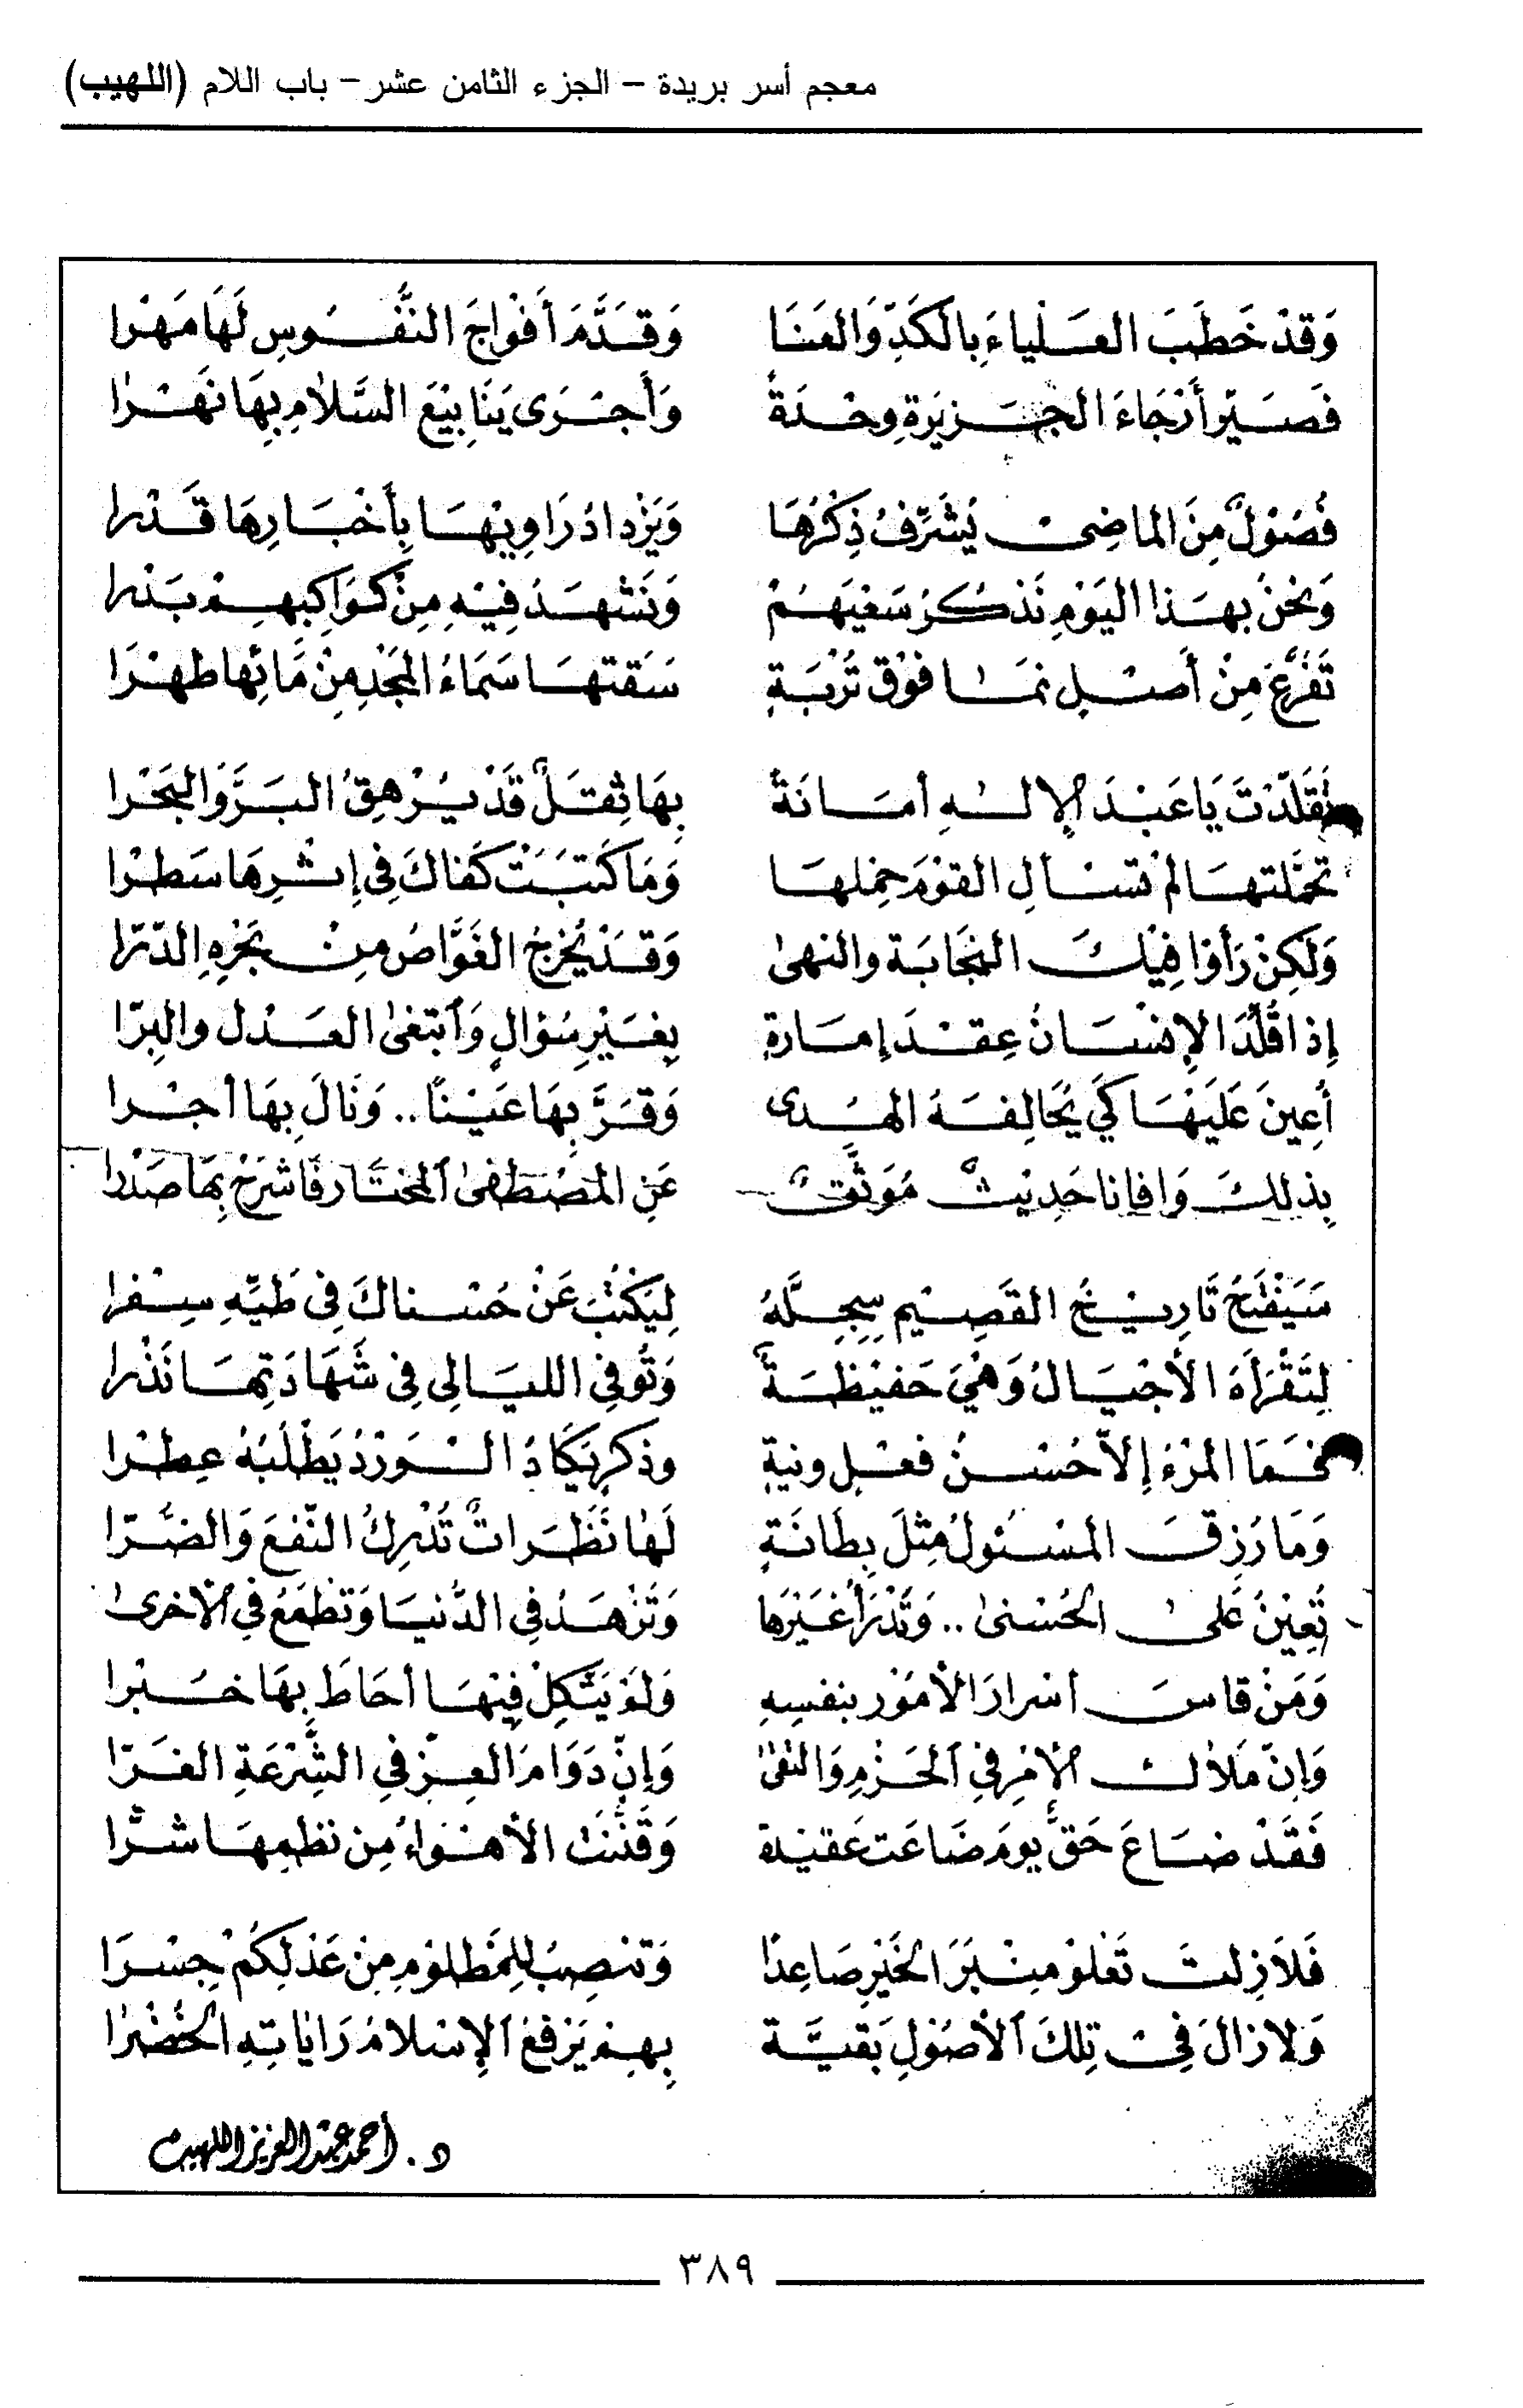 معجم أسر بريدة – الجزء الثامن عشر – باب اللام (اللهيب)
وَقَدْ خَطَبَ العَلْياءَ بِالكَدِّ وَالعَنَا وَقَدَّمَ أَفْوَاجَ النُّفُوسِ لَهَا مَهْرا
فَصَيَّر أَرْجَاءَ الجَزِيْرَةِ وِحْدَةً وَأَجْرَى يَنَابِيْعَ السَّلَامِ بِهَا نَهْرا
فُصُوْلٌ مِنَ الماضِيْ يُشَرِّفُ ذِكْرُهَا وَيَزْدادُ رَاوِيْهَا بِأَخْبَارِهَا قَدْرا
وَنَحْنُ بِهَذا اليَوْمِ نَذْكُرُ سَعْيَهُمْ وَنَشْهَدُ فِيْهِ مِنْ كَوَاكِبِهِمْ بَدْرا
تَفَرَّعَ مِنْ أَصْلٍ نَمَا فَوْقَ تُرْبَةٍ سَقَتهَا سَمَاءُ المَجْدِ مِنْ مَائِها طهْرَا
تَقَلَّدْتَ يَا عَبْدَ الإلٰهِ أَمَانَةً بِهَا ثِقَلٌ قَدْ يُرْهِقُ البَرَّ وَالبَحْرا
تحَمَّلتهَا لَمْ تسْأَلِ القَوْمَ حِمْلهَا وَمَا كَتَبَتْ كَفاكَ فِي إِثْرِهَا سَطْرا
وَلَكِنْ رَأَوْا فِيْكَ النَّجَابَة والنهىٰ وَقَدْ يُخْرِجُ الغَوَّاصُ مِنْ بَحْرِهِ الدّرّا
إِذا قُلِّدَ الإِنْسَانُ عِقْدَ إِمَارَةٍ بِغَيْرِ سُؤَالٍ وَابْتغىٰ العَدْل والبِرّا
أُعِينَ عَلَيْهَا كَيْ يُحَالِفَهُ الهُدى وَقَرَّ بِهَا عَيْنًا .. وَنَالَ بِهَا أَجْرا
بِذلكَ وَافانا حَدِيْثٌ مُوَثَّقٌ عَنِ المُصْطَفىٰ المُخْتَار فَاشْرَحْ بِهَا صَدْرا
سَيَفْتَحُ تَارِيْخُ القَصِيْمِ سِجِلَّهُ لِيَكْتُبَ عَنْ حُسْناكَ فِي طَيِّهِ سِفْرا
لِتَقْرَأَهُ الأَجْيَالُ وَهْيَ حَفِيْظَةٌ وَتُوفِي الليَالِي فِي شَهَادَتِهَا نَذْرا
فَمَا المَرْءُ إِلاَّ حُسْنُ فعْلٍ ونيةٍ وذكرٍ يَكَادُ الوَرْدُ يَطْلُبُهُ عِطْرا
وَمَا رُزِقَ المَسْئُولُ مِثْلَ بِطَانَةٍ لَهَا نَظَرَاتٌ تُدْرِكُ النَّفعَ وَالضُّرّا
تُعِيْنُ عَلىٰ الحُسْنىٰ .. وَتَدْرَأُ غَيْرَهَا وَتَزْهَدُ فِي الدُّنيَا وَتَطْمَعُ فِي الأُخرىٰ
وَمَنْ قاسَ أَسْرارَ الأُمُوْر بنفسِهِ وَلَمْ يَتَّكِلْ فِيْهَا أَحَاطَ بِهَا خُبْرا
وَإِنّ مَلاَكَ الأَمْرِ فِي الحَزْمِ وَالتقىٰ وَإِنّ دَوَامَ العِزّ فِي الشِّرْعَةِ الغَرّا
فَقَدْ ضَاعَ حَقٌّ يومَ ضَاعَت عَقيْدة وَقَنَّنَت الأَهْوَاءُ مِن نظمِهَا شرًّا
فَلاَ زِلتَ تَعْلُو مِنْبَرَ الخَيْرِ صَاعِدًا وَتنصِبُ لِلمَظلوُمِ مِنْ عَدْلِكُمْ جِسْرَا
وَلا زالَ فِيْ تِلكَ الأُصُوْلِ بَقيَّة بِهِمْ يَرْفَعُ الإِسْلامُ رَايَاتِهِ الخُضْرا
د. أحمد عبد العزيز اللهيب
٣٨٩